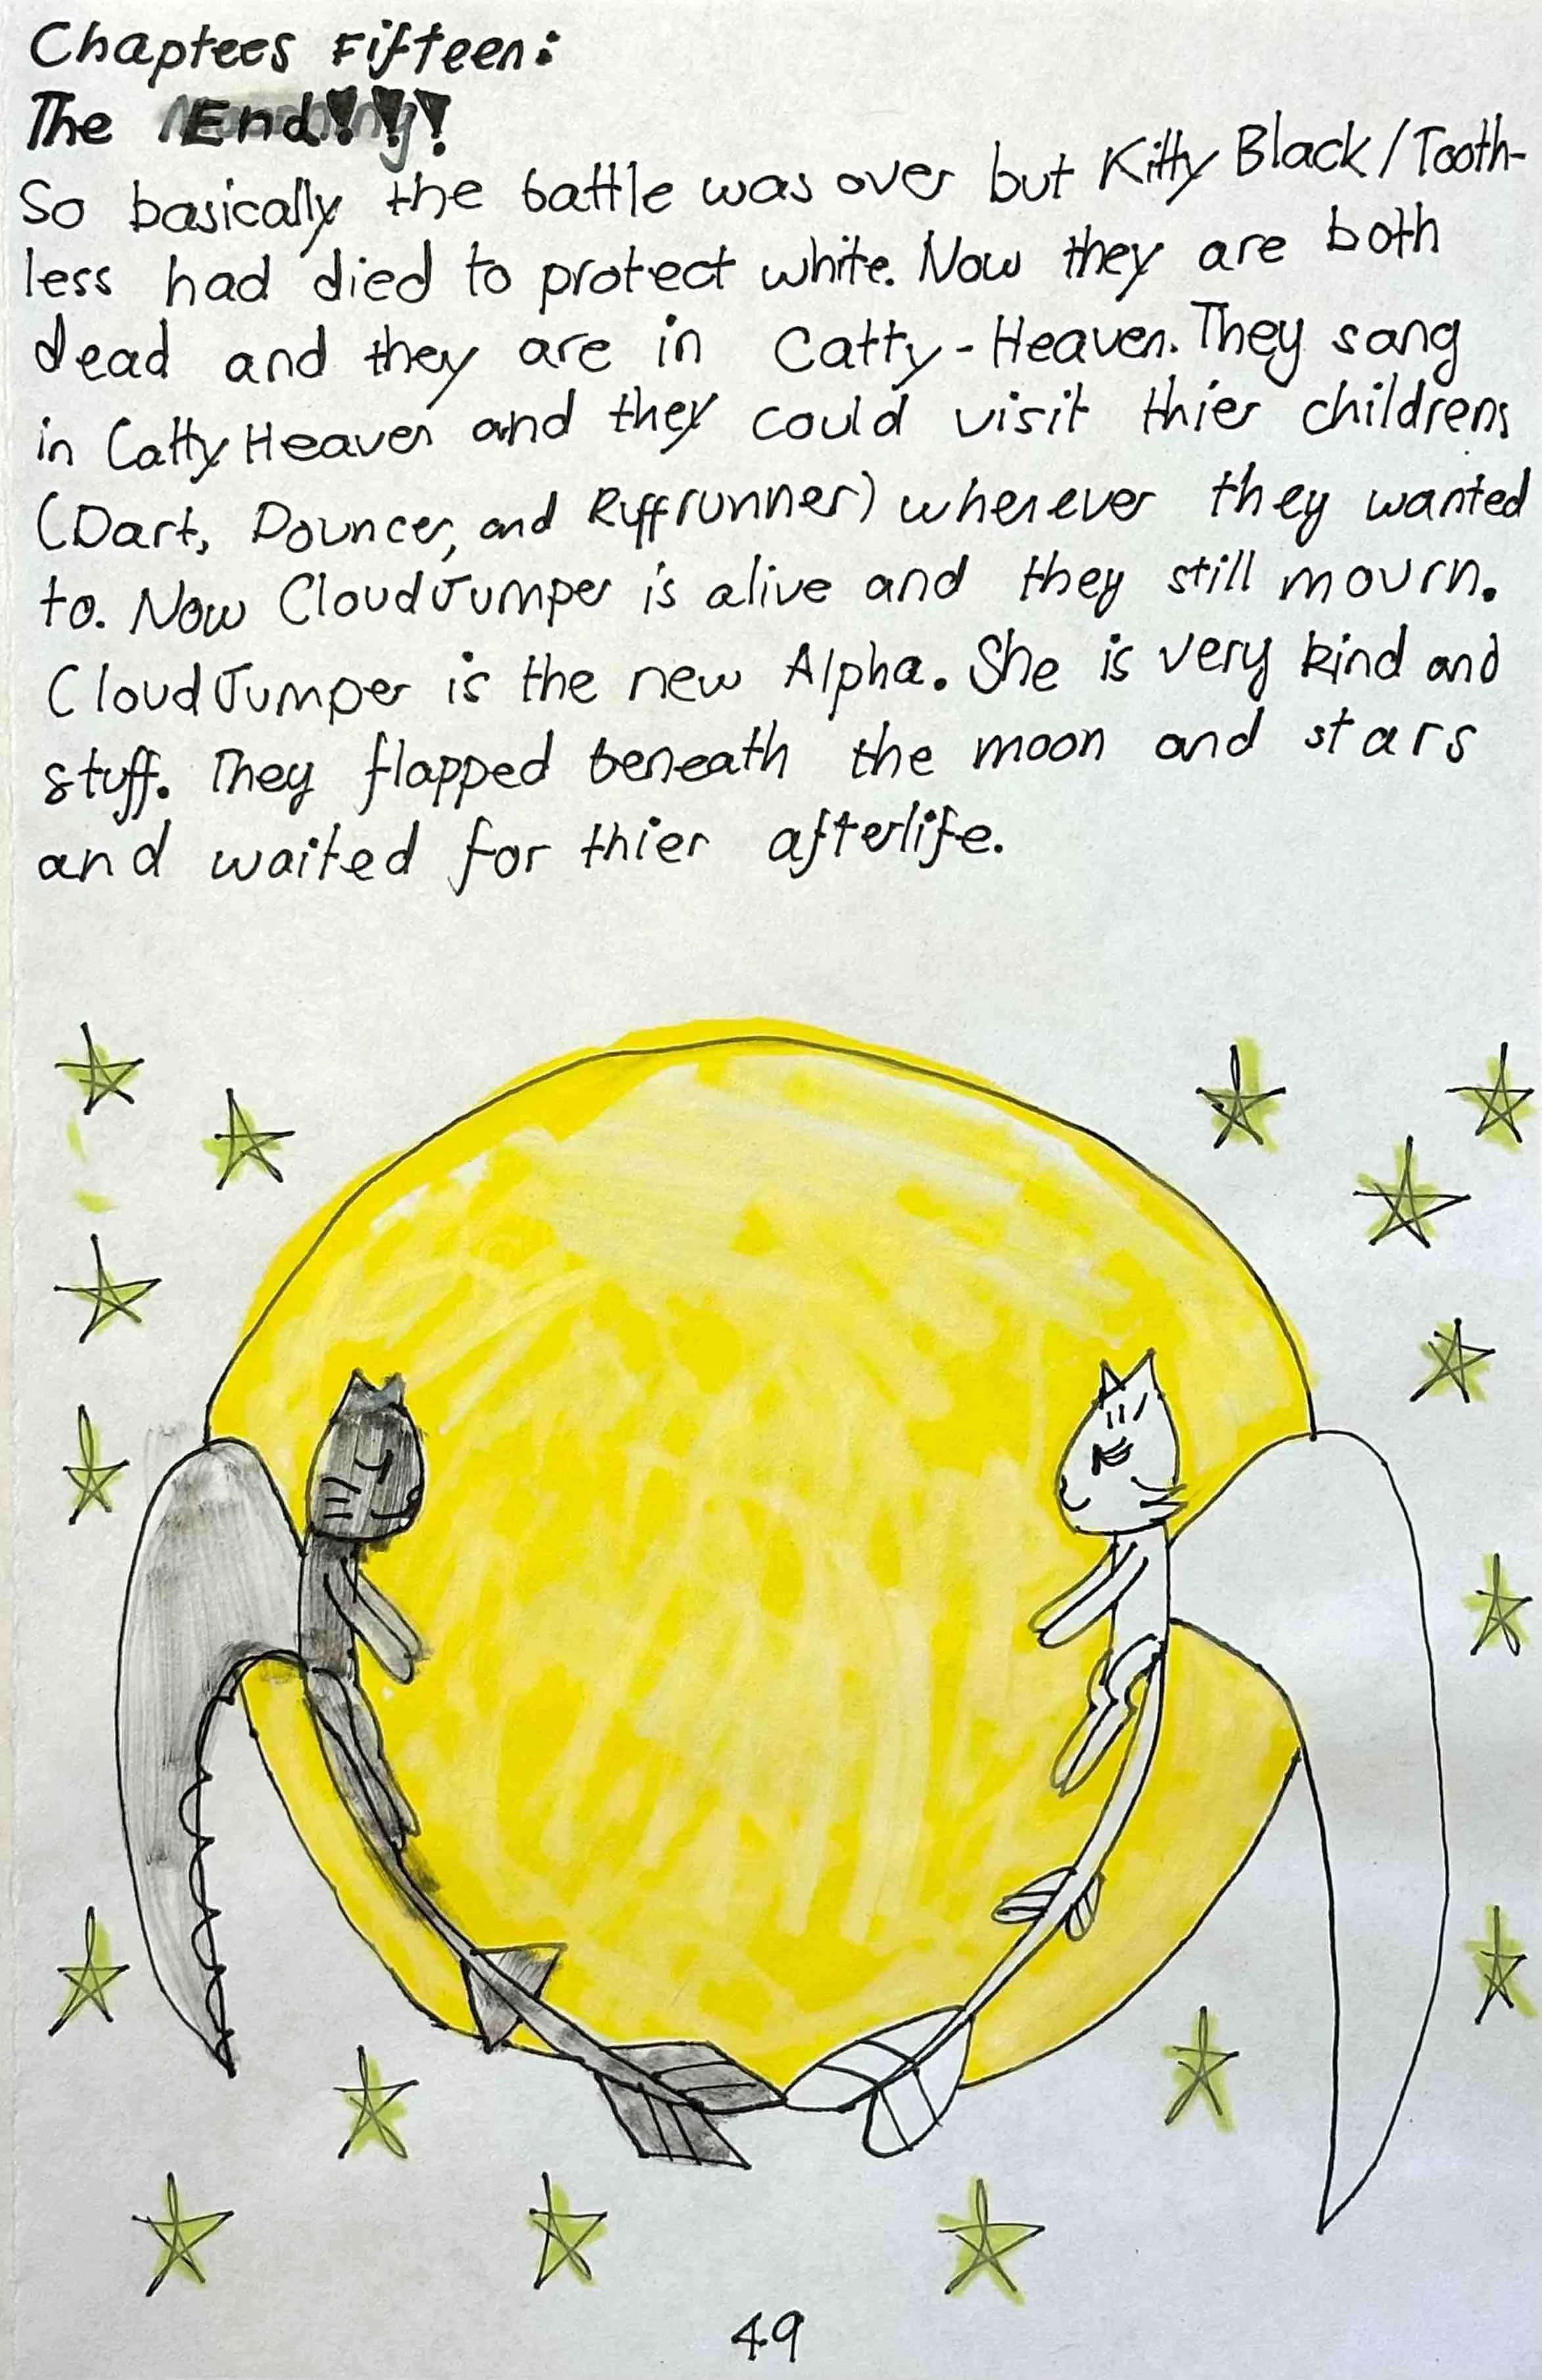 Chaptees Fifteen:
The End!!!
So basically the battle was over but Kitty Black/Tooth-
less had died to protect white. Now they are both
dead and they are in Catty-Heaven. They sang
in Catty Heaven and they could visit thier childrens
(Dart, Pouncer, and Ruffrunner) whenever they wanted
to. Now CloudJumper is alive and they still mourn.
CloudJumper is the new Alpha. She is very kind and
stuff. They flapped beneath the moon and stars
and waited for thier afterlife.
49